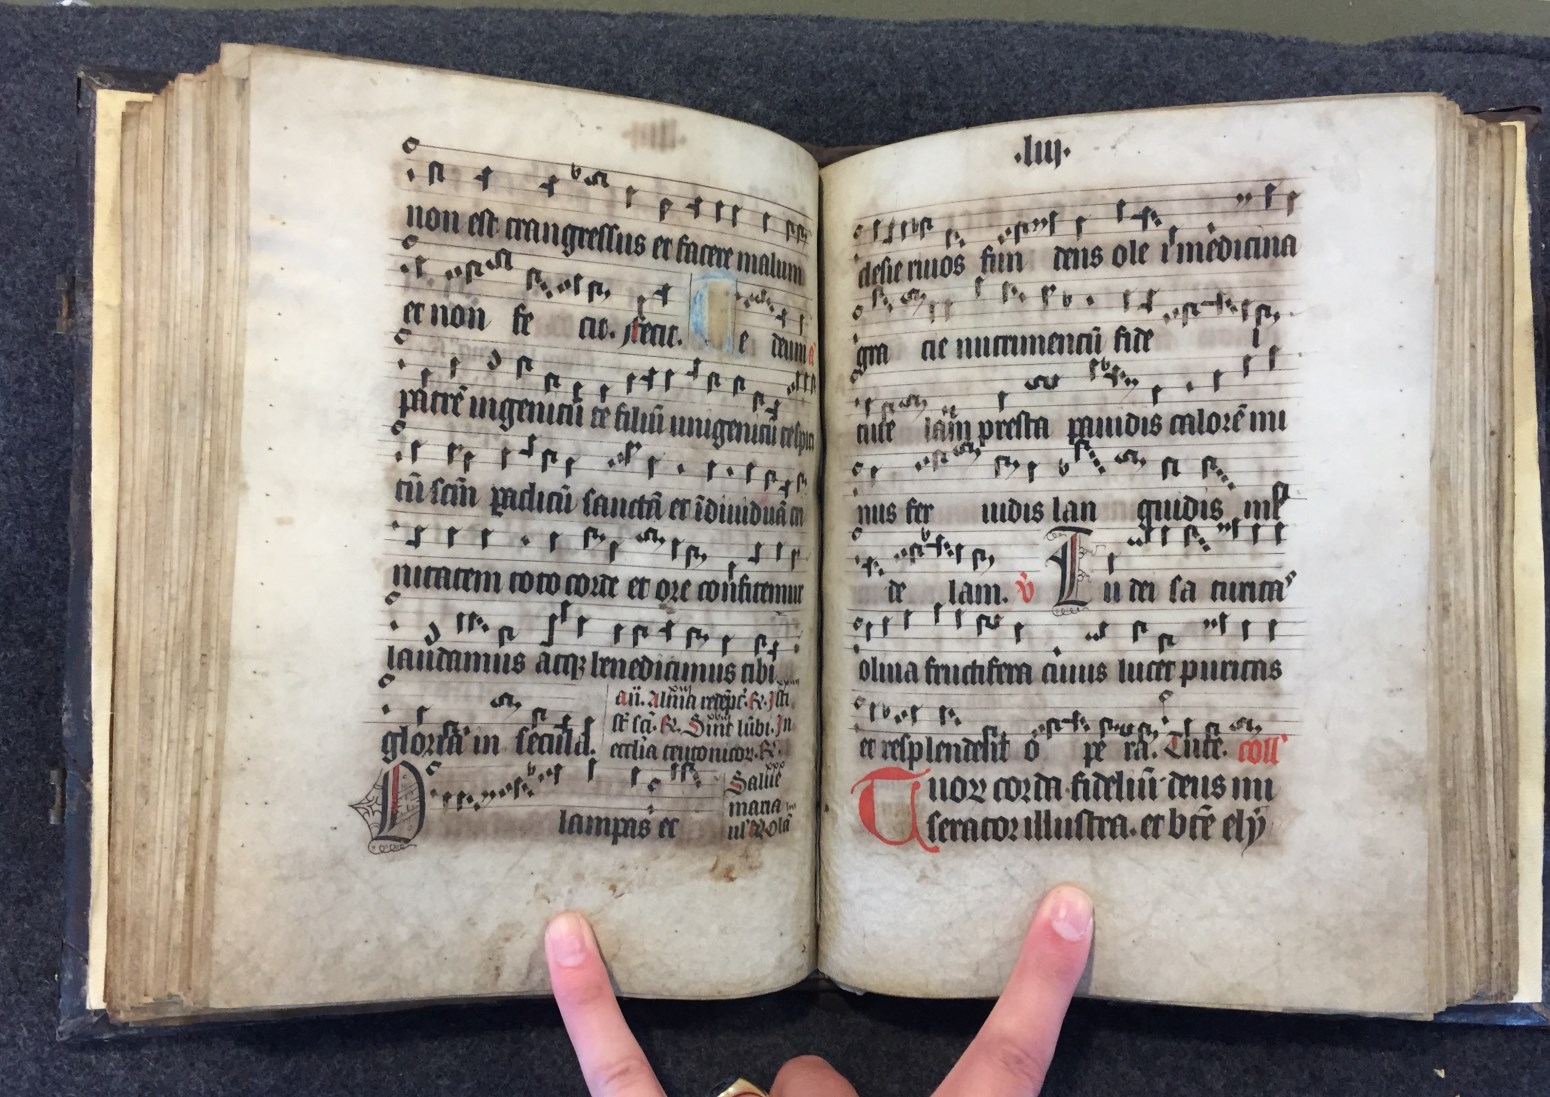 non est transgressus et facere malum
et non fe cit. fecit. e deum
patrē ingenitū te filiū unigenitū te spiri
tū scm̄ paclitū sanctā et īdiuiduā tri
nitatem toto corde et ore confitemur
laudamus atqz benedicimus tibi
gloria in secula.
lampas et
Salue
maria
.liij.
clesie riuos fun dens ole i medicina
gra cie nutrimentū fide
tute lam presta pauidis calorē mi
nus fer uidis lan guidis
de lam. v̊ Lu dei sa
oliua fructifera cuius lucet puritas
et resplendesit o pe ra. Tute. coll
Tuor corda fideliū deus mi
serator illustra. et bte ely